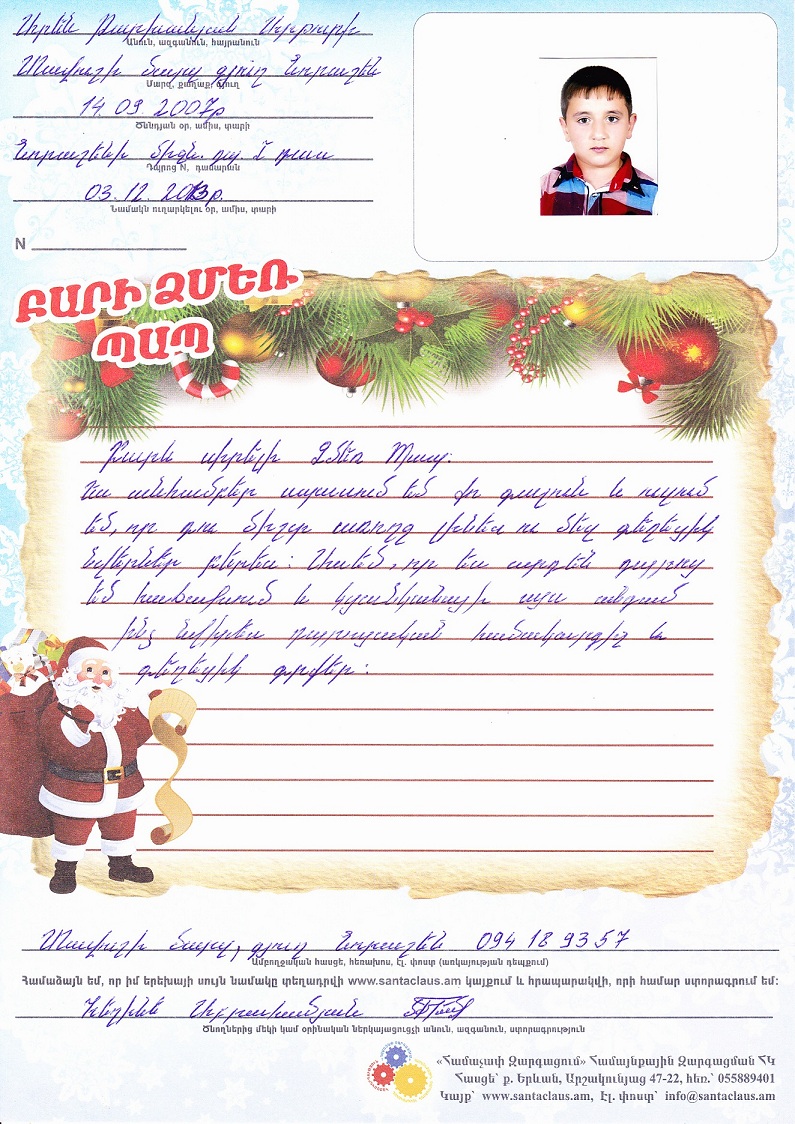 Սուրեն Բարխանյան Արթուրի
Անուն, ազգանուն, հայրանուն
Տավուշի մարզ գյուղ Նորաշեն
Մարզ, քաղաք, գյուղ
14. 09. 2007թ
Ծննդյան օր, ամիս, տարի
Նորաշենի միջն. դպ. I դաս
Դպրոց N, դասարան
03. 12. 2013թ.
Նամակն ուղարկելու օր, ամիս, տարի
N
ԲԱՐԻ ՁՄԵՌ
ՊԱՊ
Բարև սիրելի Ձմեռ Պապ.
Ես անհամբեր սպասում եմ քո գալուն և ուզում
եմ, որ դու միշտ առողջ լինես ու մեզ գեղեցիկ
նվերներ բերես: Ասեմ, որ ես արդեն դպրոց
եմ հաճախում և կցանկանայի այս անգամ
ինձ նվիրես դպրոցական համակարգիչ և
գեղեցիկ գրքեր:
Տավուշի մարզ, գյուղ Նորաշեն 094 18 93 57
Ամբողջական հասցե, հեռախոս, էլ. փոստ (առկայության դեպքում)
Համաձայն եմ, որ իմ երեխայի սույն նամակը տեղադրվի www.santaclaus.am կայքում և հրապարակվի, որի համար ստորագրում եմ:
Հեղինե
Ծնողներից մեկի կամ օրինական ներկայացուցչի անուն, ազգանուն, ստորագրություն
«Համաչափ Զարգացում» Համայնքային Զարգացման ՀԿ
Հասցե՝ ք. Երևան, Արշակունյաց 47-22, հեռ.՝ 055889401
Կայք՝ www.santaclaus.am, Էլ. փոստ՝ info@santaclaus.am